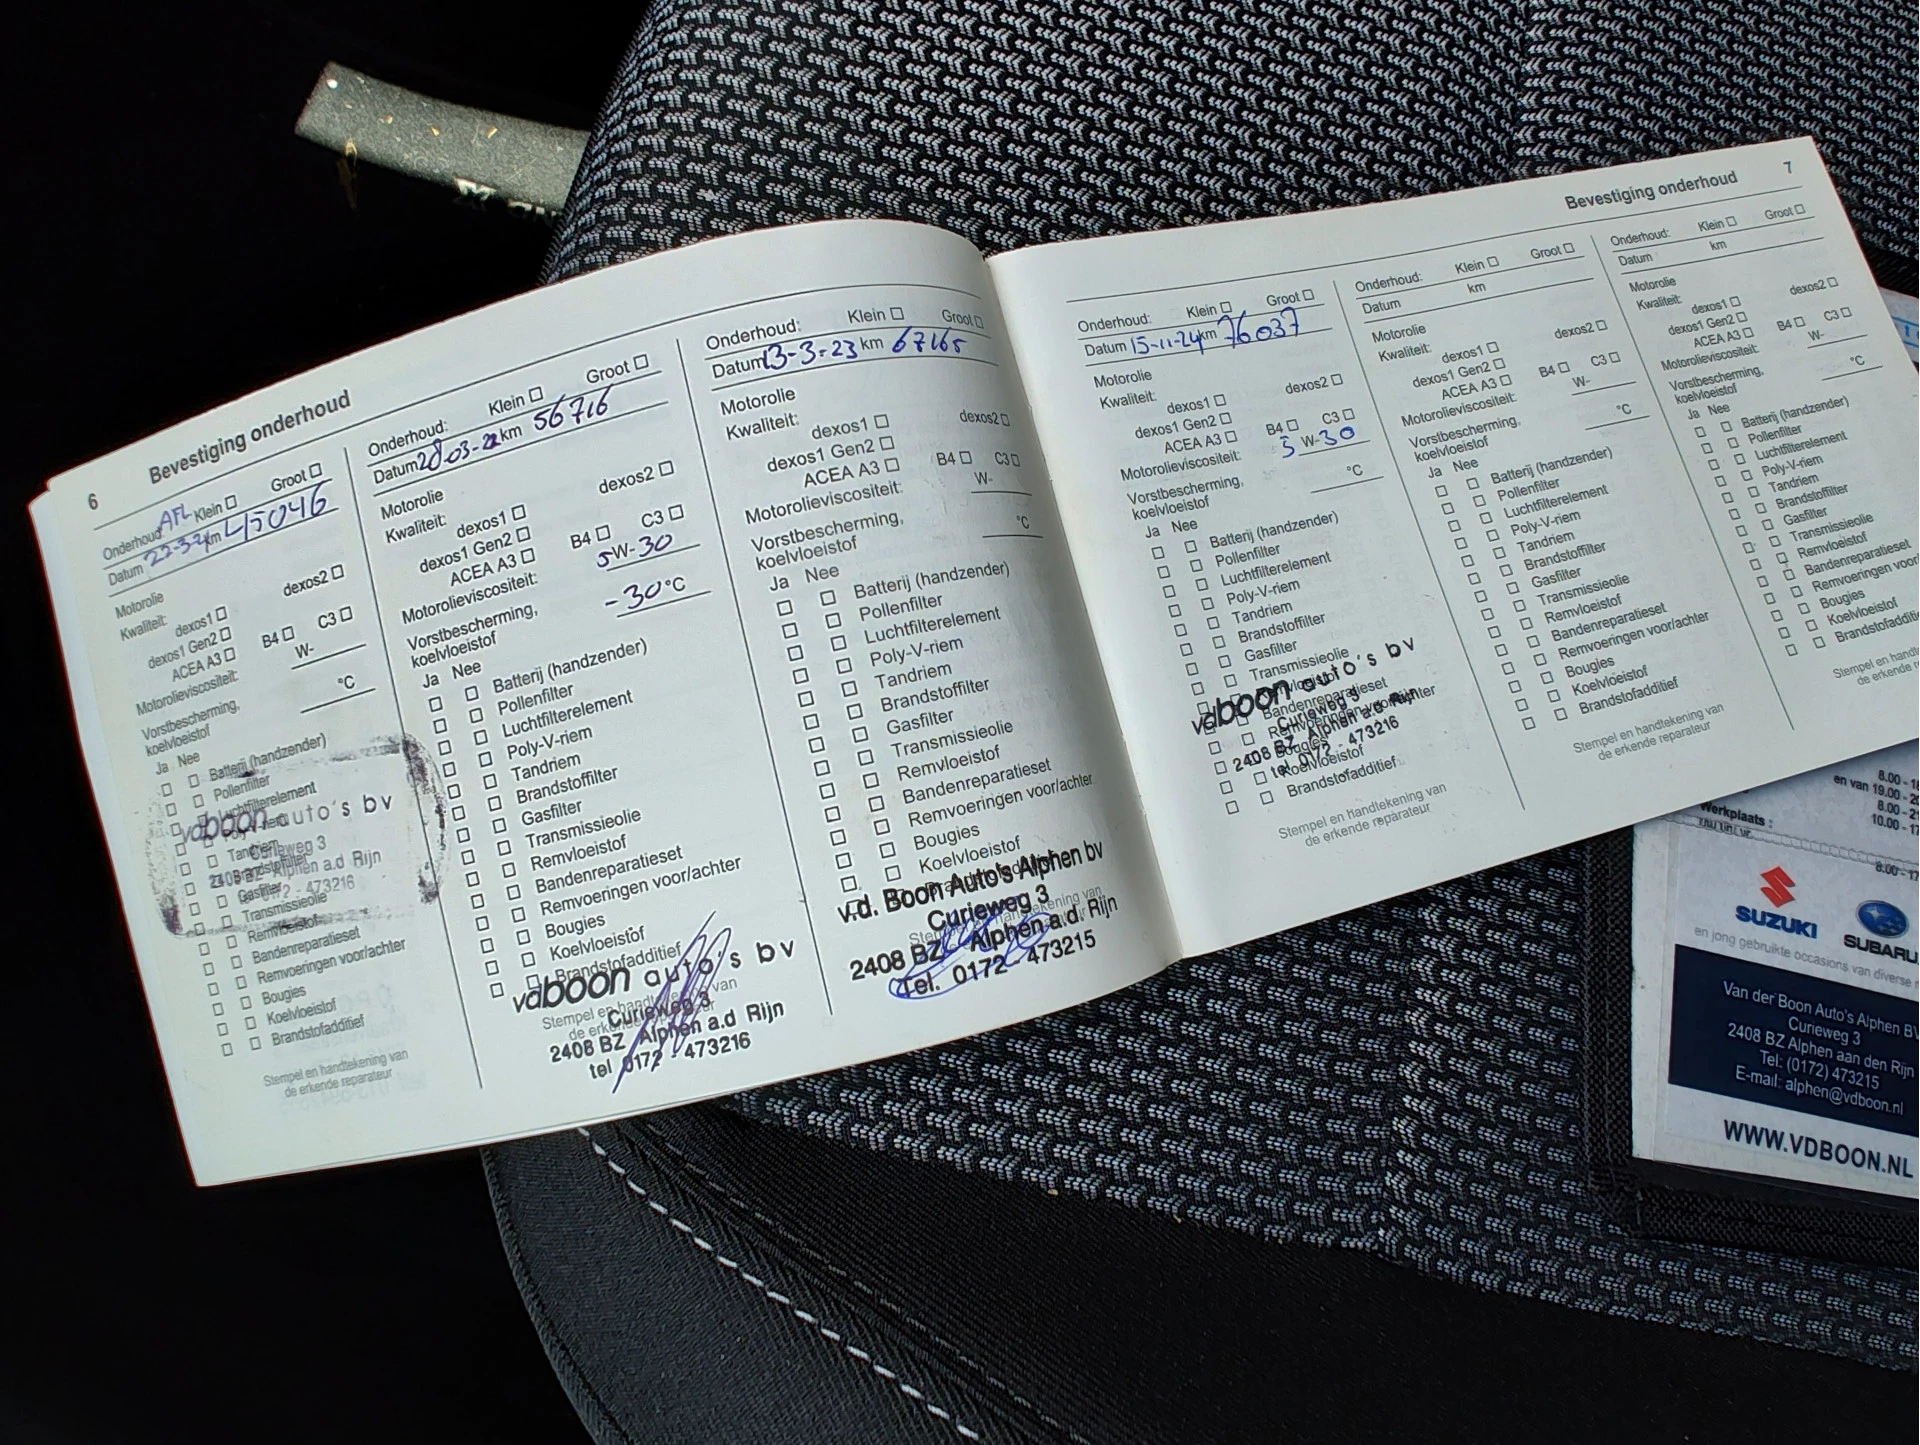 6
Bevestiging onderhoud
Onderhoud: AFL Klein Groot
Datum km 45046
Motorolie
Kwaliteit: dexos1 dexos2
dexos1 Gen2
ACEA A3 B4 C3
Motorolieviscositeit: W-
Vorstbescherming,
koelvloeistof °C
Ja Nee
Batterij (handzender)
Pollenfilter
Luchtfilterelement
Poly-V-riem
Tandriem
Brandstoffilter
Gasfilter
Transmissieolie
Remvloeistof
Bandenreparatieset
Remvoeringen voor/achter
Bougies
Koelvloeistof
Brandstofadditief
vdboon auto's bv
Curieweg 3
2408 BZ Alphen a.d Rijn
0172 - 473216
Stempel en handtekening van
de erkende reparateur
Onderhoud: Klein Groot
Datum 28-03-22 km 56716
Motorolie
Kwaliteit: dexos1 dexos2
dexos1 Gen2
ACEA A3 B4 C3
Motorolieviscositeit: 5W-30
Vorstbescherming,
koelvloeistof -30°C
Ja Nee
Batterij (handzender)
Pollenfilter
Luchtfilterelement
Poly-V-riem
Tandriem
Brandstoffilter
Gasfilter
Transmissieolie
Remvloeistof
Bandenreparatieset
Remvoeringen voor/achter
Bougies
Koelvloeistof
Brandstofadditief
vdboon auto's bv
Stempel en handtekening van
de erkende reparateur
Curieweg 3
2408 BZ Alphen a.d Rijn
tel 0172 - 473216
Onderhoud: Klein Groot
Datum 13-3-23 km 67165
Motorolie
Kwaliteit: dexos1 dexos2
dexos1 Gen2
ACEA A3 B4 C3
Motorolieviscositeit: W-
Vorstbescherming,
koelvloeistof °C
Ja Nee
Batterij (handzender)
Pollenfilter
Luchtfilterelement
Poly-V-riem
Tandriem
Brandstoffilter
Gasfilter
Transmissieolie
Remvloeistof
Bandenreparatieset
Remvoeringen voor/achter
Bougies
Koelvloeistof
v.d. Boon Auto's Alphen bv
Curieweg 3
2408 BZ Alphen a.d. Rijn
Tel. 0172 - 473215
Bevestiging onderhoud
7
Onderhoud: Klein Groot
Datum 15-11-24 km 76037
Motorolie
Kwaliteit: dexos1 dexos2
dexos1 Gen2
ACEA A3 B4 C3
Motorolieviscositeit: 5 W-30
Vorstbescherming,
koelvloeistof °C
Ja Nee
Batterij (handzender)
Pollenfilter
Luchtfilterelement
Poly-V-riem
Tandriem
Brandstoffilter
Gasfilter
Transmissieolie
Remvloeistof
Bandenreparatieset
Remvoeringen voor/achter
Bougies
Koelvloeistof
Brandstofadditief
vdboon auto's bv
Curieweg 3
2408 BZ Alphen a.d Rijn
tel 0172 - 473216
Stempel en handtekening van
de erkende reparateur
Onderhoud: Klein Groot
Datum km
Motorolie
Kwaliteit: dexos1 dexos2
dexos1 Gen2
ACEA A3 B4 C3
Motorolieviscositeit: W-
Vorstbescherming,
koelvloeistof °C
Ja Nee
Batterij (handzender)
Pollenfilter
Luchtfilterelement
Poly-V-riem
Tandriem
Brandstoffilter
Gasfilter
Transmissieolie
Remvloeistof
Bandenreparatieset
Remvoeringen voor/achter
Bougies
Koelvloeistof
Brandstofadditief
Stempel en handtekening van
de erkende reparateur
Onderhoud: Klein Groot
Datum km
Motorolie
Kwaliteit: dexos1 dexos2
dexos1 Gen2
ACEA A3 B4 C3
Motorolieviscositeit: W-
Vorstbescherming,
koelvloeistof °C
Ja Nee
Batterij (handzender)
Pollenfilter
Luchtfilterelement
Poly-V-riem
Tandriem
Brandstoffilter
Gasfilter
Transmissieolie
Remvloeistof
Bandenreparatieset
Remvoeringen voor
Bougies
Koelvloeistof
Brandstofadditi
Stempel en handt
de erkende r
8.00 - 18
en van 19.00 - 20
8.00 - 21
Werkplaats : 10.00 - 17
8.00 - 17
SUZUKI
SUBARU
en jong gebruikte occasions van diverse
Van der Boon Auto's Alphen BV
Curieweg 3
2408 BZ Alphen aan den Rijn
Tel: (0172) 473215
E-mail: alphen@vdboon.nl
WWW.VDBOON.NL